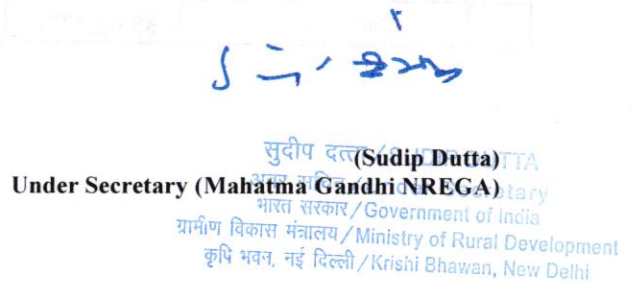 (Sudip Dutta)
Under Secretary (Mahatma Gandhi NREGA)
सुदीप दत्ता / SUDIP DUTTA
अवर सचिव / Under Secretary
भारत सरकार / Government of India
ग्रामीण विकास मंत्रालय / Ministry of Rural Development
कृषि भवन, नई दिल्ली / Krishi Bhawan, New Delhi